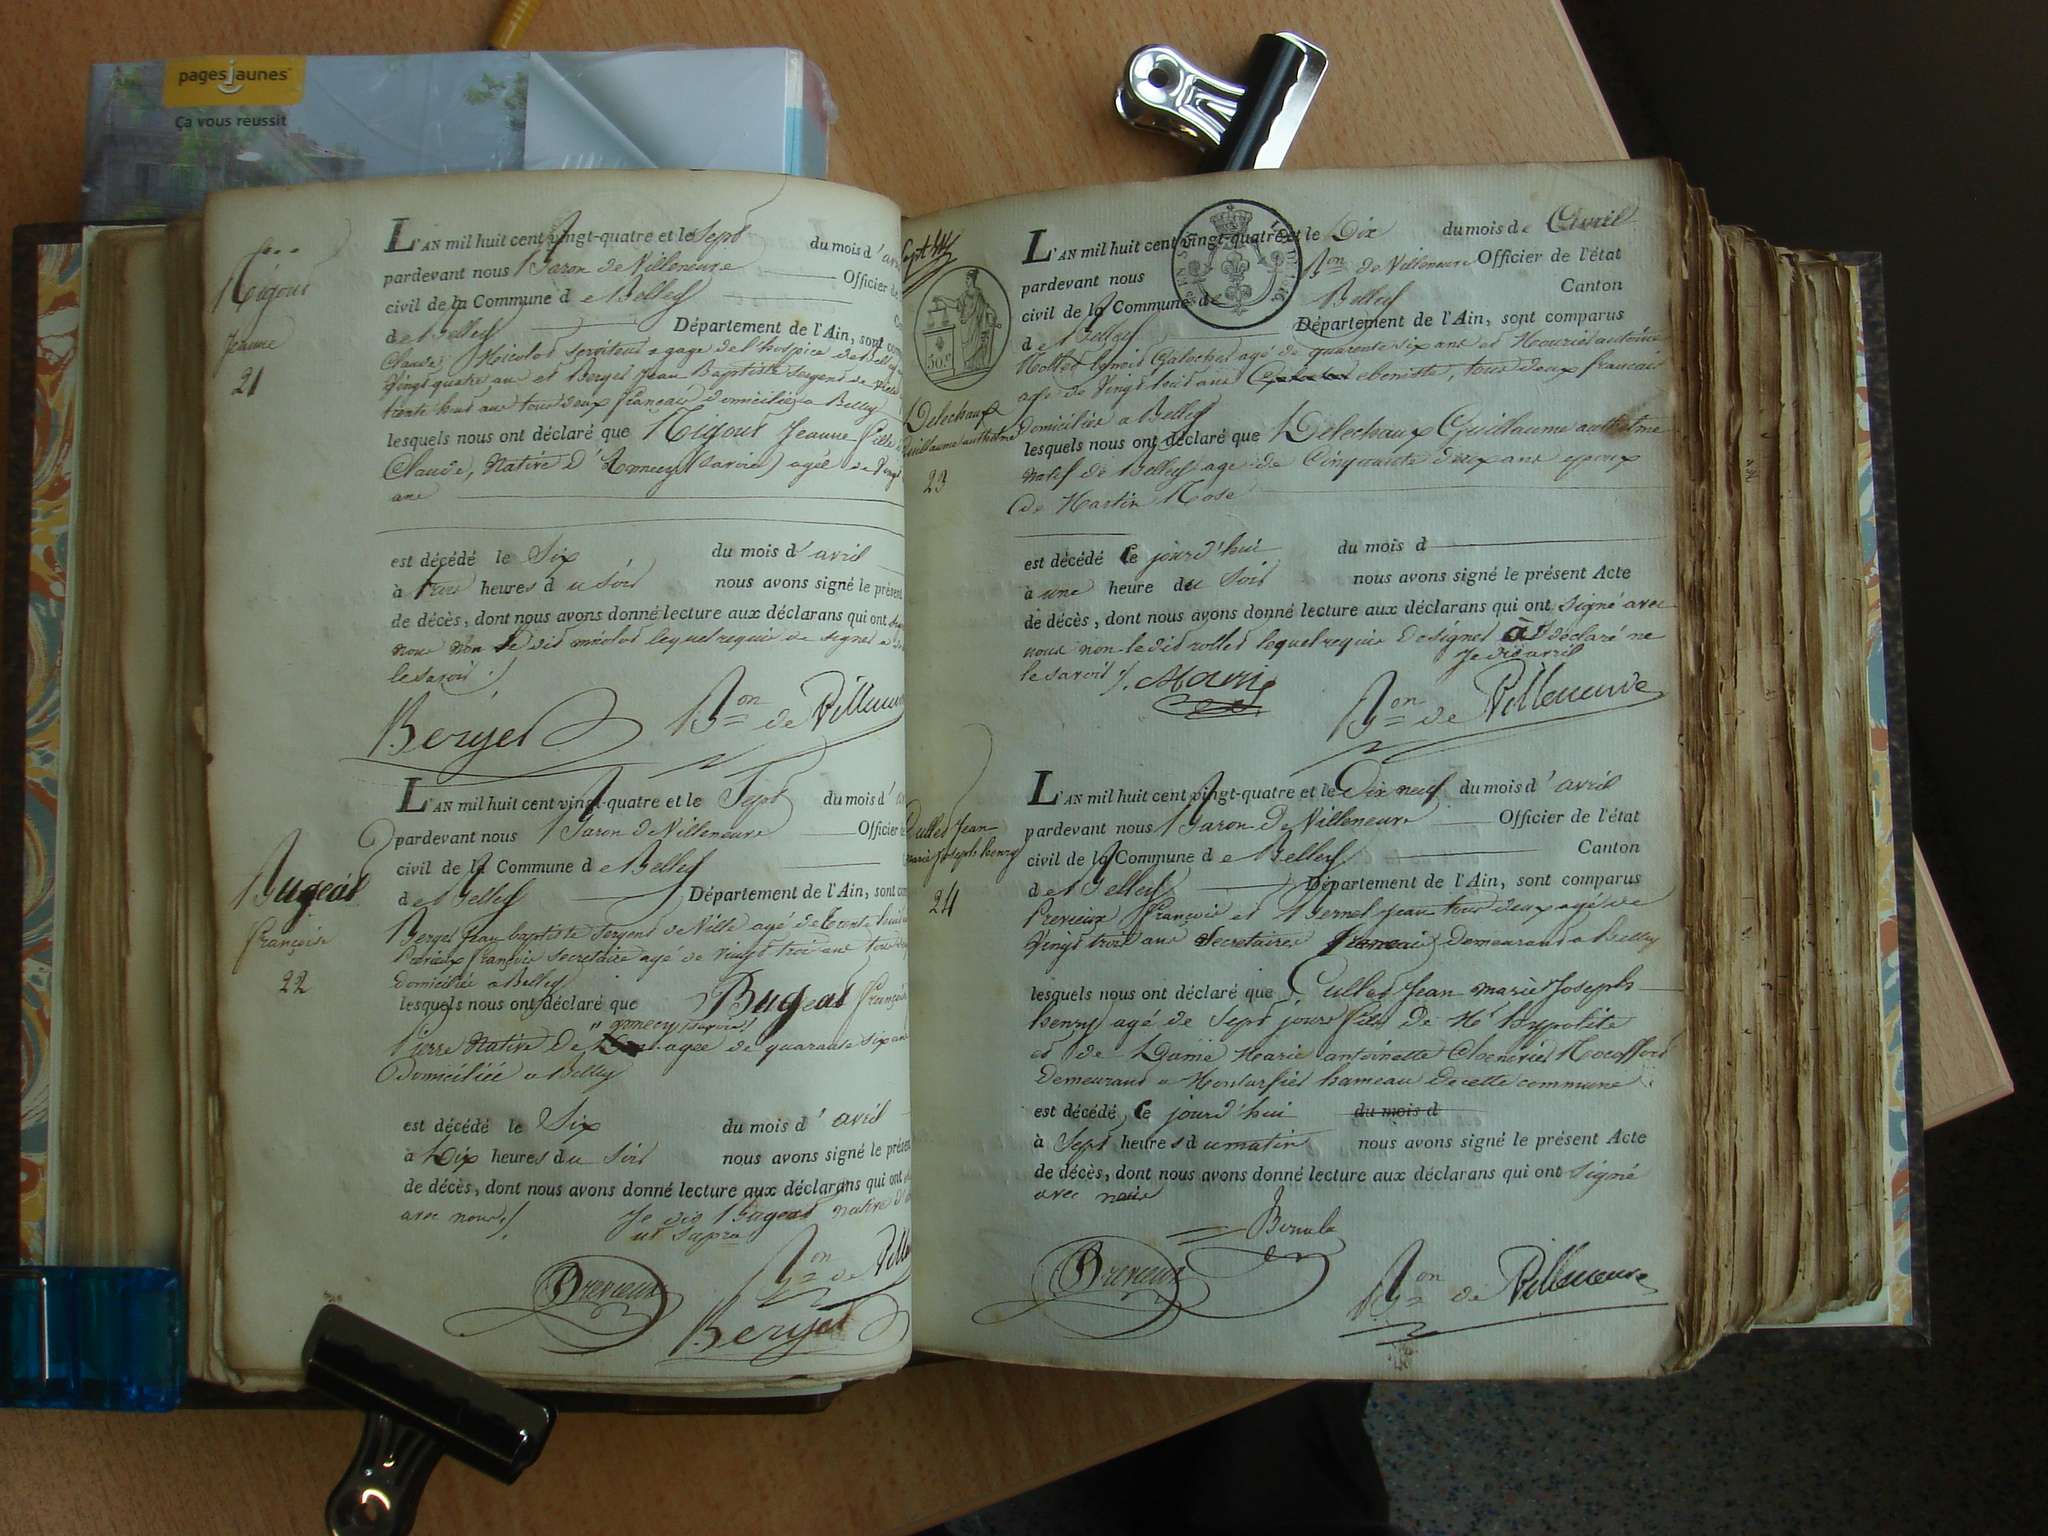 pagesjaunes
Ça vous réussit
Jeanne
21
L'AN mil huit cent vingt-quatre et le Sept du mois d'
pardevant nous Baron de Villeneuve Officier de
civil de la Commune d e Belley
de Belley Département de l'Ain, sont
Claude Nicolod serviteur a gage de l'hospice de
Vingt quatre ans et Berger Jean Baptiste Sergent de
trente huit ans tous deux francais domiciliés a Belley
lesquels nous ont déclaré que Jeanne fille
Claude, Native d' (Savoie) agée de Vingt
ans
est décédé le Six du mois d' avril
à trois heures d u soir nous avons signé le présent
de décès, dont nous avons donné lecture aux déclarans qui ont
nous non le dit nicolod lequel requis de signer a
le savoir ./
Berger Bon de Villeneuve
Bugeat
françoise
22
L'AN mil huit cent vingt-quatre et le Sept du mois d'
pardevant nous Baron de Villeneuve Officier
civil de la Commune d e Belley
d e Belley Département de l'Ain, sont
Berger Jean baptiste Sergent de Ville agé de trente huit
françois secretaire agé de vingt trois ans tous
Domiciliés a Belley
lesquels nous ont déclaré que Bugeat françoise
annecy (Savoie)
Pierre Native de agée de quarante six ans
Domiciliée a Belley
est décédé le Six du mois d' avril
à Dix heures du soir nous avons signé le présent
de décès, dont nous avons donné lecture aux déclarans qui ont
avec nous ./ Je dis Bugeat native d'
ut Supra
Brevieux Bon de
Berger
50 c
Delechaux
Guillaume anthelme
23
L'AN mil huit cent vingt-quatre et le Dix du mois de Avril
pardevant nous Bon de Villeneuve Officier de l'état
civil de la Commune de Belley Canton
d e Belley Département de l'Ain, sont comparus
Rollet benoit agé de quarante six ans et Mourié antoine
age de Vingt trois ans ebeniste, tous deux francais
domiciliés a Belley
lesquels nous ont déclaré que Delechaux Guillaume anthelme
natif de Belley age de Cinquante deux ans epoux
de Martin Rose
est décédé Ce jourd'hui du mois d
à une heure du Soir nous avons signé le présent Acte
de décès, dont nous avons donné lecture aux déclarans qui ont signé avec
nous non le dit rollet lequel requis de signer a déclaré ne
Je dis avril
le savoir ./.
Bon de Villeneuve
Jean
marie Joseph henry
24
L'AN mil huit cent vingt-quatre et le Dix neuf du mois d' avril
pardevant nous Baron de Villeneuve Officier de l'état
civil de la Commune d e Belley Canton
d e Belley Département de l'Ain, sont comparus
Brevieux François et Bernel Jean tous deux agés de
Vingt trois ans Secretaires demeurant a Belley
lesquels nous ont déclaré que Jean marie Joseph
henry agé de Sept jours fils de Mr hypolite
et de Dame Marie antoinette
Demeurant a hameau de cette commune
est décédé Ce jourd'hui du mois d
à Sept heures d u matin nous avons signé le présent Acte
de décès, dont nous avons donné lecture aux déclarans qui ont signé
avec nous
Brevieux
Bon de Villeneuve